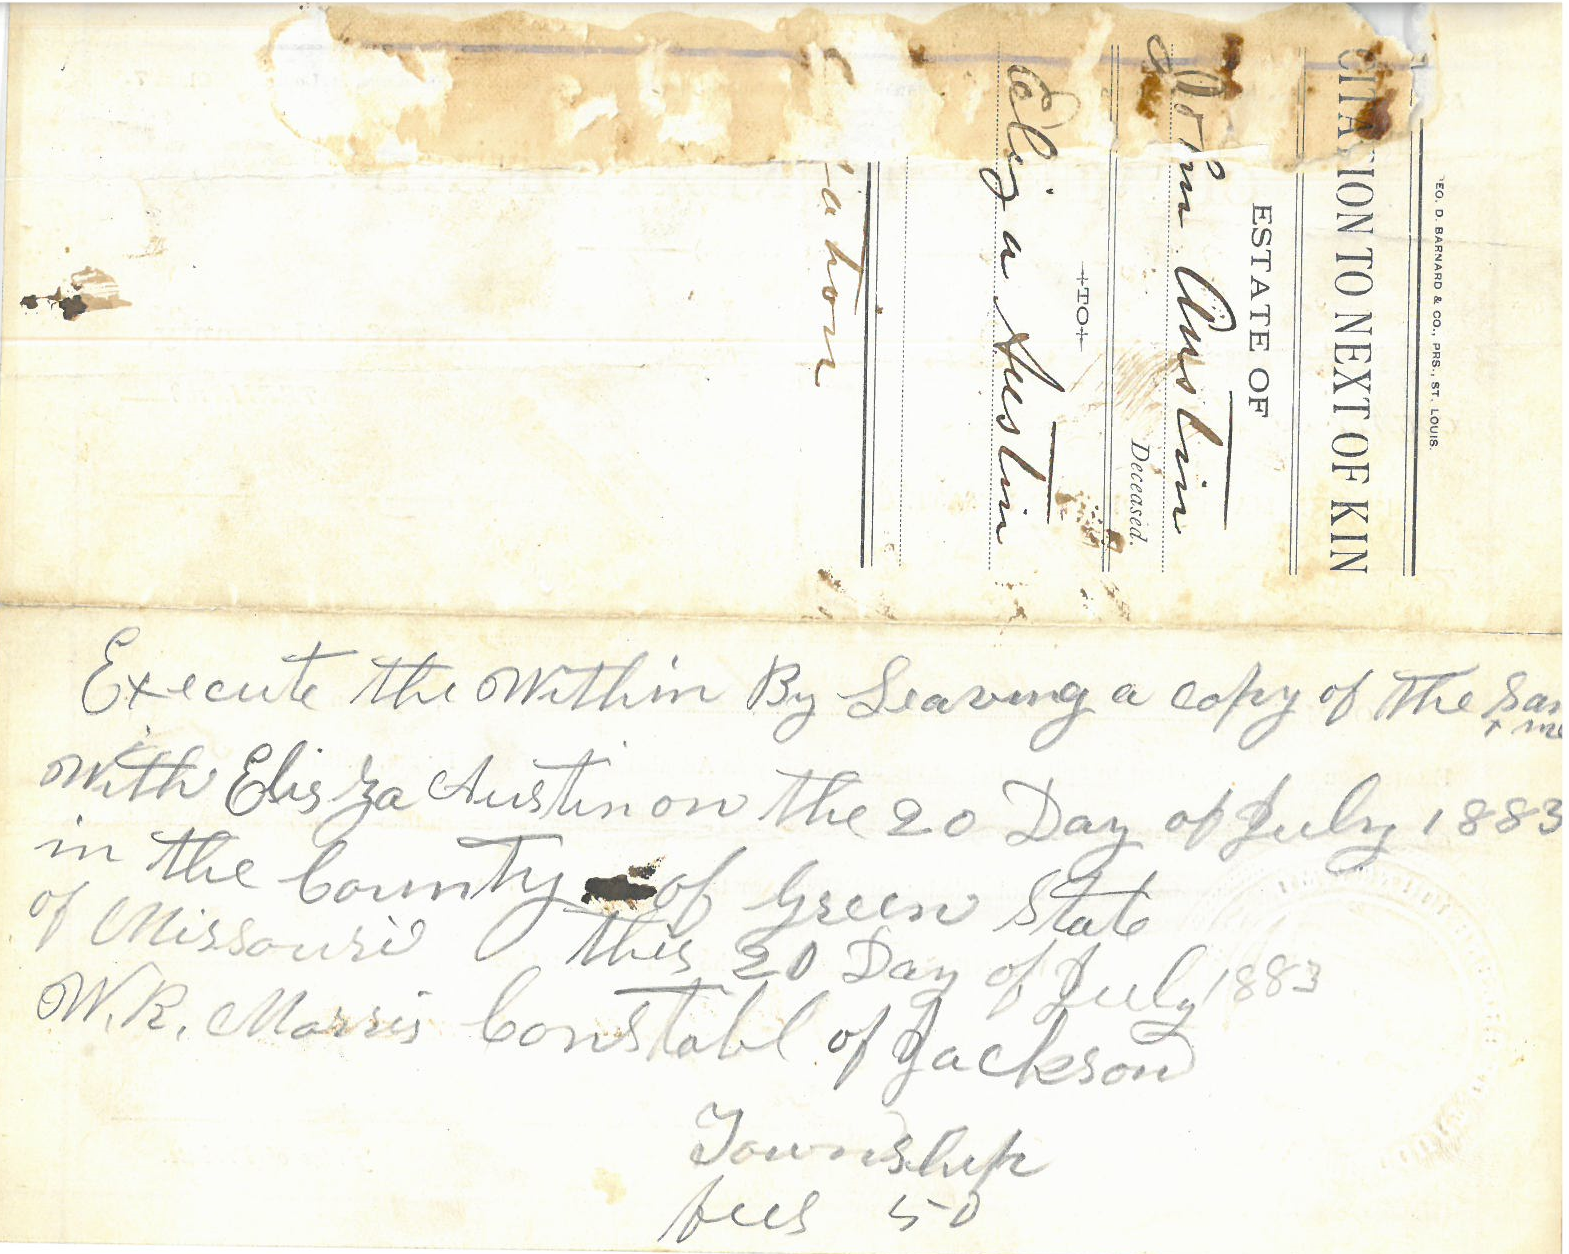 GEO. D. BARNARD & CO., PRS., ST. LOUIS.
CITATION TO NEXT OF KIN
ESTATE OF
John Austin
Deceased.
TO
Eliza Austin
Execute the Within By Leaving a copy of the Sam
me
With Elisza Austin on the 20 Day of July 1883
in the County of Green State
of Missouri this 20 Day of July 1883
W. R. Morris Constabl of Jackson
Township
fees 50